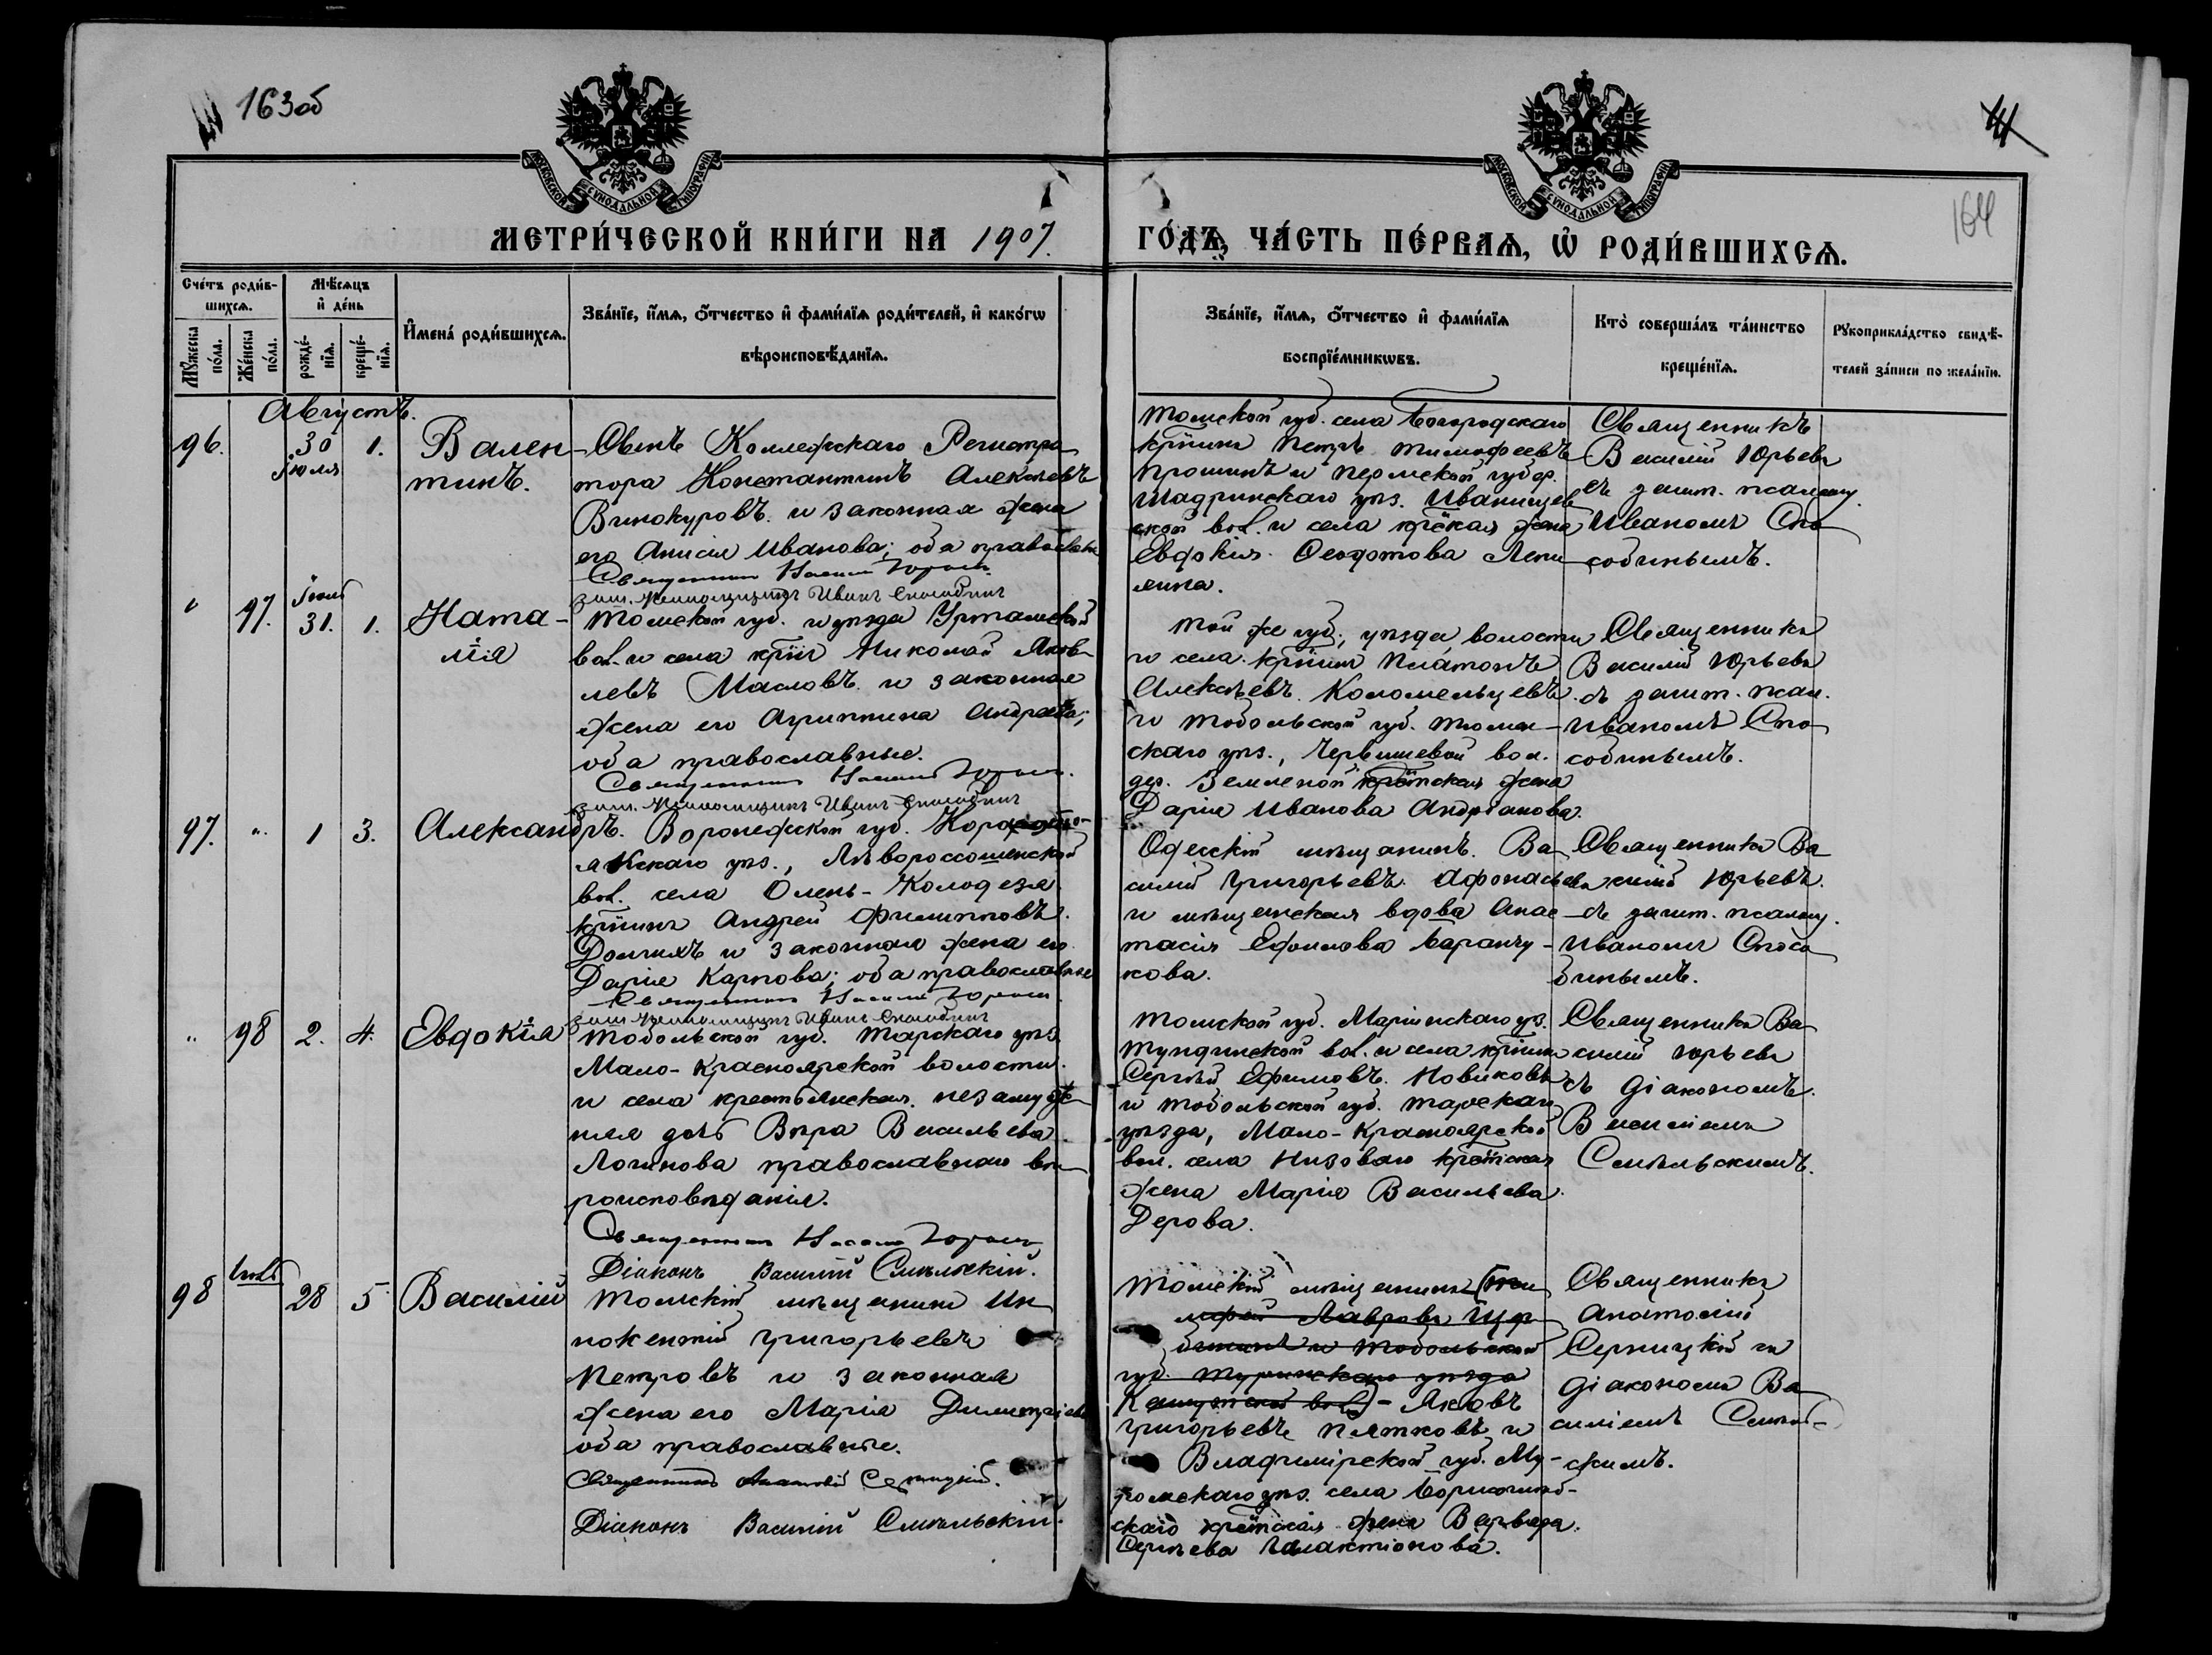 163об
164
МОСКОВСКОЙ СѴНОДАЛЬНОЙ ТИПОГРАФІИ
МОСКОВСКОЙ СѴНОДАЛЬНОЙ ТИПОГРАФІИ
МЕТРИ́ЧЕСКОЙ КНИ́ГИ НА 1907.
ГО́ДЪ, ЧА́СТЬ ПЕ́РВАѦ, Ѡ҆ РОДИ́ВШИХСѦ.
Сче́тъ роди́в-
шихсѧ.
Мꙋ́жеска по́ла.
Же́нска по́ла.
Мѣ́сѧцъ
и҆ де́нь
рожде́-
нїѧ.
креще́-
нїѧ.
И҆мена̀ роди́вшихсѧ.
Зва́нїе, и҆́мѧ, ѻ҆́тчество и҆ фами́лїѧ роди́телей, и҆ како́гѡ
вѣроисповѣ́данїѧ.
Зва́нїе, и҆́мѧ, ѻ҆́тчество и҆ фами́лїѧ
воспрїе́мникѡвъ.
Кто̀ соверша́лъ та́инство
креще́нїѧ.
Рꙋкоприкла́дство свидѣ́-
телей за́писи по жела́нїю.
Августъ.
96.
30
Іюля
1.
Вален-
тинъ.
Сынъ Коллежскаго Регистра
тора Константинъ Алексѣевъ
Винокуровъ и законная жена
его Анисія Иванова; оба православн
Священникъ Василій Юрьевъ
заш. псаломщикъ Иванъ Способинъ
Томской губ. села Богородскаго
кр̃нинъ Петръ Тимофеевъ
Прошинъ и Пермской губер.
Шадринскаго уѣз. Иванищев
ской вол. и села кр̃ская жена
Евдокія Ѳеодотова Лепи
хина.
Священникъ
Василій Юрьевъ
съ зашт. псаломщ.
Иваномъ Спо
собинымъ.
97.
Іюль
31.
1.
Ната-
лія
Томской губ. и уѣзда Уртамской
вол. и села кр̃нъ Николай Яков
левъ Масловъ и законная
жена его Агриппина Андреева;
оба православные.
Священникъ Василій Юрьевъ.
заш. псаломщикъ Иванъ Способинъ
Той же губ., уѣзда волости
и села кр̃нинъ Платонъ
Алексѣевъ Коломельцевъ
и Тобольской губ. Тюмен-
скаго уѣз., Червишевой вол.
дер. Земленой кр̃тская жена
Дарія Иванова Андріанова.
Священникъ
Василій Юрьевъ
съ зашт. псал.
Иваномъ Спо
собинымъ.
97.
"
1
3.
Александръ.
Воронежской губ. Коро
якскаго уѣз., Лѣвороссошенской
вол. села Олень-Колодезя
кр̃нинъ Андрей Филипповъ
Долгихъ и законная жена его
Дарія Карпова; оба православные
Священникъ Василій Юрьевъ
заш. псаломщикъ Иванъ Способинъ
Одесскій мѣщанинъ Ва
силій Григорьевъ Афонасьевъ
и мѣщанская вдова Анас-
тасія Ефимова Баранчу-
кова.
Священникъ Ва
силій Юрьевъ
съ зашт. псаломщ.
Иваномъ Спосо
бинымъ.
"
98
2.
4.
Евдокія
Тобольской губ. Тарскаго уѣз.
Мало-Красноярской волости
и села крестьянская незамуж
няя дочь Вѣра Васильева
Логинова православнаго вѣ
роисповѣданія.
Священникъ Василій Юрьевъ
Діаконъ Василій Смѣльскій.
Томской губ. Маріинскаго уѣз.
Тундинской вол. и села кр̃нинъ
Сергѣй Ефимовъ Новиковъ
и Тобольской губ. Тарскаго
уѣзда, Мало-Красноярской
вол. села Низоваго кр̃тская
жена Марія Васильева
Дерова.
Священникъ Ва
силій Юрьевъ
съ діакономъ
Василіемъ
Смѣльскимъ.
98
Іюль
28
5
Василій
Томскій мѣщанинъ Ин
нокентій Григорьевъ
Петровъ и законная
жена его Марія Димитріева
оба православные.
Священникъ Анатолій Серницкій.
Діаконъ Василій Смѣльскій.
Томскій мѣщанинъ (Тим
офей Лавровъ Щер
и Тобольской
губ. Туринскаго уѣзда
вол.) - Яковъ
Григорьевъ Пятковъ и
Владимірской губ. Му-
ромскаго уѣз. села Борисоглѣб-
скаго кр̃тская жена Варвара
Сергѣева Галактіонова.
Священникъ
Анатолій
Серницкій съ
діакономъ Ва
силіемъ Смѣль-
скимъ.